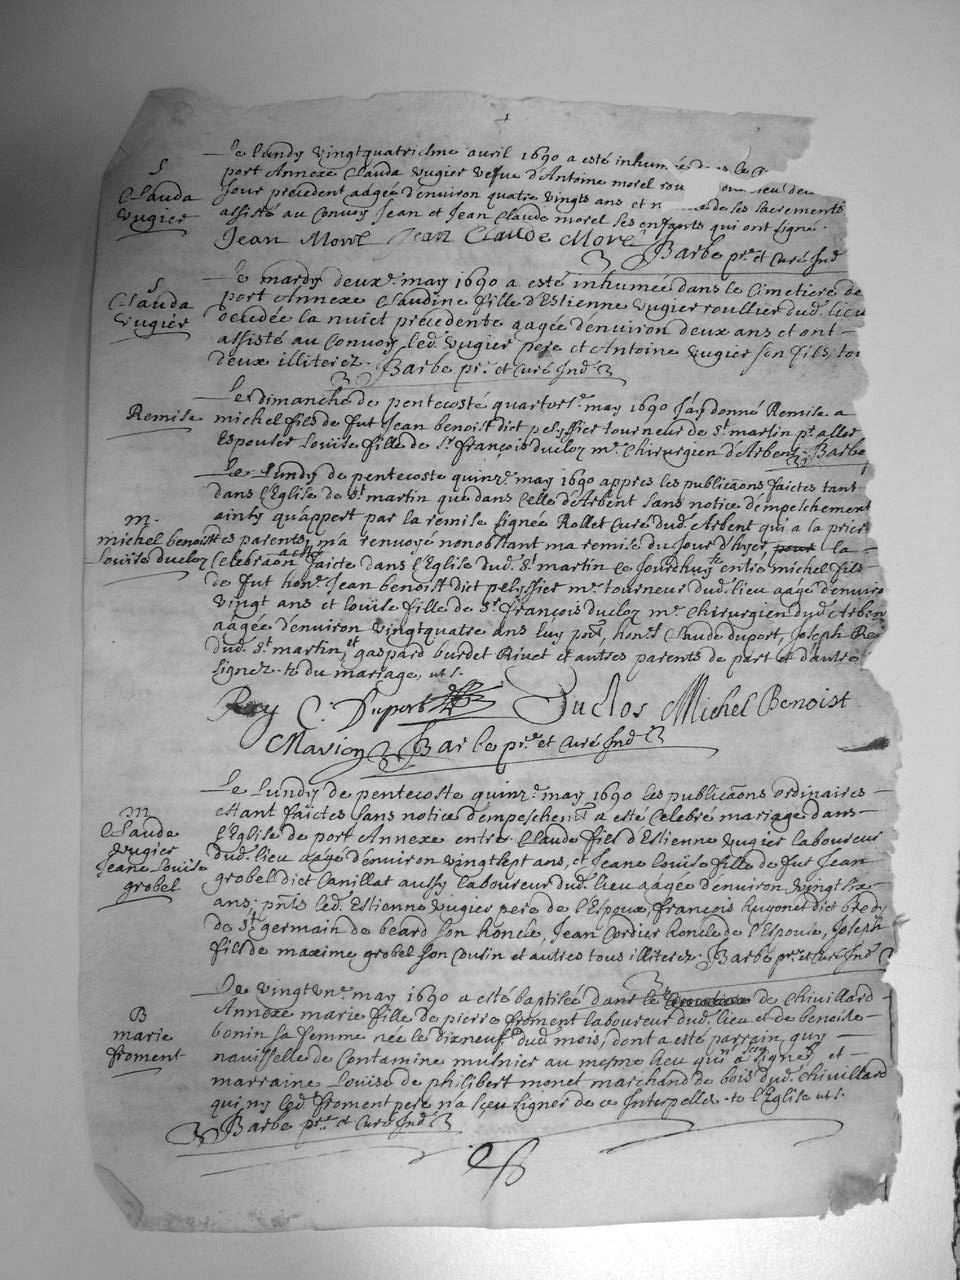 S
Clauda
Vugier
Le lundy vingtquatriesme avril 1690 a esté inhumée dans le
port Annexe Clauda Vugier vefve d'Antoine morel
Jour precedent aagée d'environ quatre vingts ans et de les sacrements
assisté au Convoy Jean et Jean Claude morel ses enfants qui ont signé.
Jean Morel Jean Claude Morel Barbe pr. et Curé Ind
S
Clauda
Vugier
Le mardy deux. may 1690 a esté inhumée dans le Cimetiere de
port Annexe Claudine fille d'Estienne Vugier roullier dud. lieu
decedée la nuict precedente aagée d'environ deux ans et ont
assisté au Convoy led. Vugier pere et Antoine Vugier son fils
deux illiterez. Barbe pr. et Curé Ind
Remise
Le dimanche de pentecoste quators. may 1690 J'ay donné Remise a
michel fils de fut Jean benoist dict pelyssier tourneur de St. martin pt. aller
Espouser Louise fille de Sr. françois ducloz me. Chirurgien d'Arbent. Barbe
m.
michel benoist
Louise ducloz
Le Lundy de pentecoste quinz. may 1690 appres les publicãons faictes tant
dans l'Eglise de St. martin que dans Celle d'Arbent sans notice d'empeschement
ainsy qu'appert par la remise signée Rollet Curé dud. Arbent qui a la priere
des parents m'a renvoyé nonobstant ma remise du Jour d'hyer pour la
Celebraõn faicte dans l'Eglise dud. St. martin le Jourdhuy entre michel fils
de fut hon. Jean benoist dict pelyssier me. tourneur dud. lieu aagé d'environ
Vingt ans et loüise fille de Sr. françois ducloz me. Chirurgien dud. Arbent
aagée d'environ vingtquatre ans hon. Claude duport, Joseph
dud. St. martin, et gaspard burdet Rivet et autres parents de part et d'autre
signez. du mariage, ut s.
Roy C. Duport Duclos Michel Benoist
Mavion Barbe pr. et Curé Ind
m
Claude
Vugier
Jeane Louise
grobel
Le Lundy de pentecoste quinz. may 1690 les publicãons ordinaires
estant faictes sans notice d'empeschemt. a esté Celebré mariage dans
l'Eglise de port Annexe entre Claude fils d'Estienne Vugier laboureur
dud. lieu aagé d'environ vingtsept ans, et Jeane louise fille de fut Jean
grobel dict Canillat aussy laboureur dud. lieu aagée d'environ vingt six
ans; pñts led. Estienne Vugier pere de l'Espoux, françois hugonet dict
de St. germain de beard son honcle, Jean Cordier honcle de l'Espouse, Joseph
fils de maxime grobel son Cousin et autres tous illiterez. Barbe pr. et Curé Ind
B
marie
froment
Le vingtun. may 1690 a esté baptisée dans le de Chivillard
Annexe marie fille de pierre froment laboureur dud. lieu et de benoite
bonin sa femme née le dixneuf. dud. mois, dont a esté parrain guy
navisselle de Contamine musnier au mesme lieu qui n'a signé et
marraine Louise de philibert monet marchand de bois dud. Chivillard
qui ny led. froment pere n'a sçeu signer de ce Interpellé. l'Eglise ut s.
Barbe pr. et Curé Ind